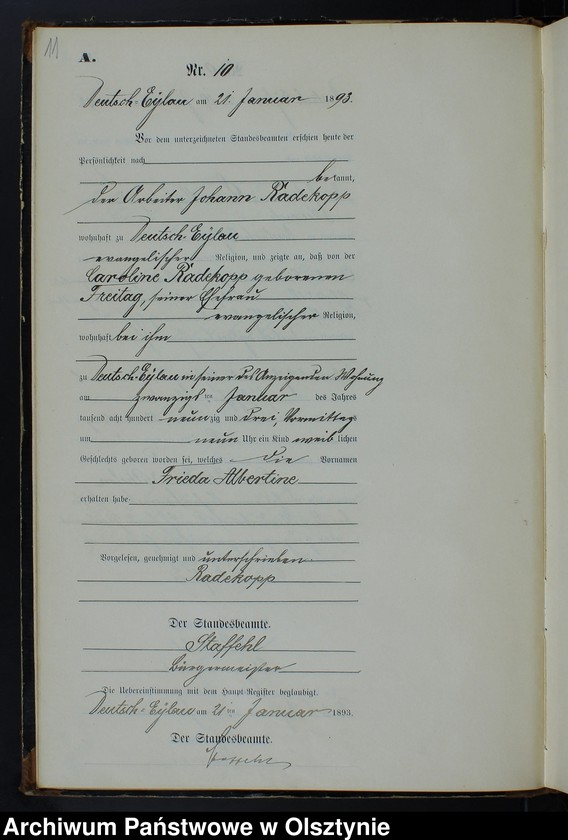 11
A.
Nr. 10
Deutsch-Eylau am 21. Januar 1893.
Vor dem unterzeichneten Standesbeamten erschien heute der
Persönlichkeit nach
bekannt,
der Arbeiter Johann Radekopp
wohnhaft zu Deutsch-Eylau
evangelischer Religion, und zeigte an, daß von der
Caroline Radekopp geborenen
Freitag, seiner Ehefrau
evangelischer Religion,
wohnhaft bei ihm
zu Deutsch-Eylau in seiner des Anzeigenden Wohnung
am zwanzigsten Januar des Jahres
tausend acht hundert neunzig und drei, Vormittags
um neun Uhr ein Kind weiblichen
Geschlechts geboren worden sei, welches die Vornamen
Frieda Albertine
erhalten habe.
Vorgelesen, genehmigt und unterschrieben
Radekopp
Der Standesbeamte.
Staffehl
Bürgermeister
Die Uebereinstimmung mit dem Haupt-Register beglaubigt.
Deutsch-Eylau am 21ten Januar 1893.
Der Standesbeamte.
Staffehl
Archiwum Państwowe w Olsztynie